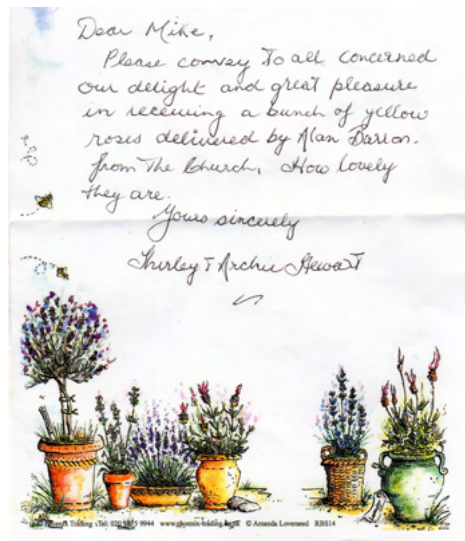 Dear Mike,
Please convey to all concerned
our delight and great pleasure
in receiving a bunch of yellow
roses delivered by Alan
from The Church, How lovely
they are.
Yours sincerely
Shirley & Archie Stewart
Trading Tel: 020 9944 www.phoenix-trading.co.uk © Amanda Loverseed RBS14